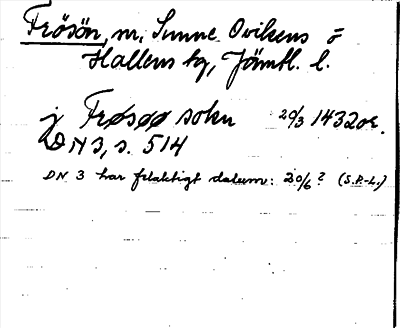 Frösön, m. Sunne Ovikens o
Hallens tg, Jämtl. l.
j Frøsøø sokn 20/3 1432 or.
DN 3, s. 514
DN 3 har felaktigt datum: 20/6? (S.R-L.)